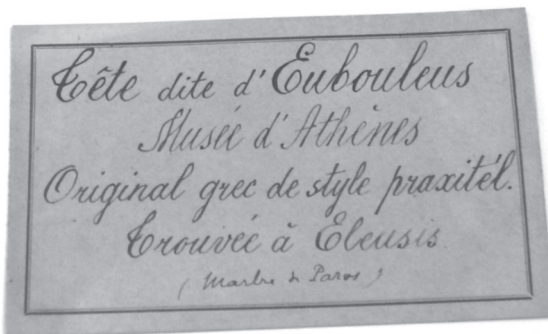 Tête dite d'Eubouleus
Musée d'Athènes
Original grec de style praxitél.
Trouvée à Eleusis
(Marbre de Paros)